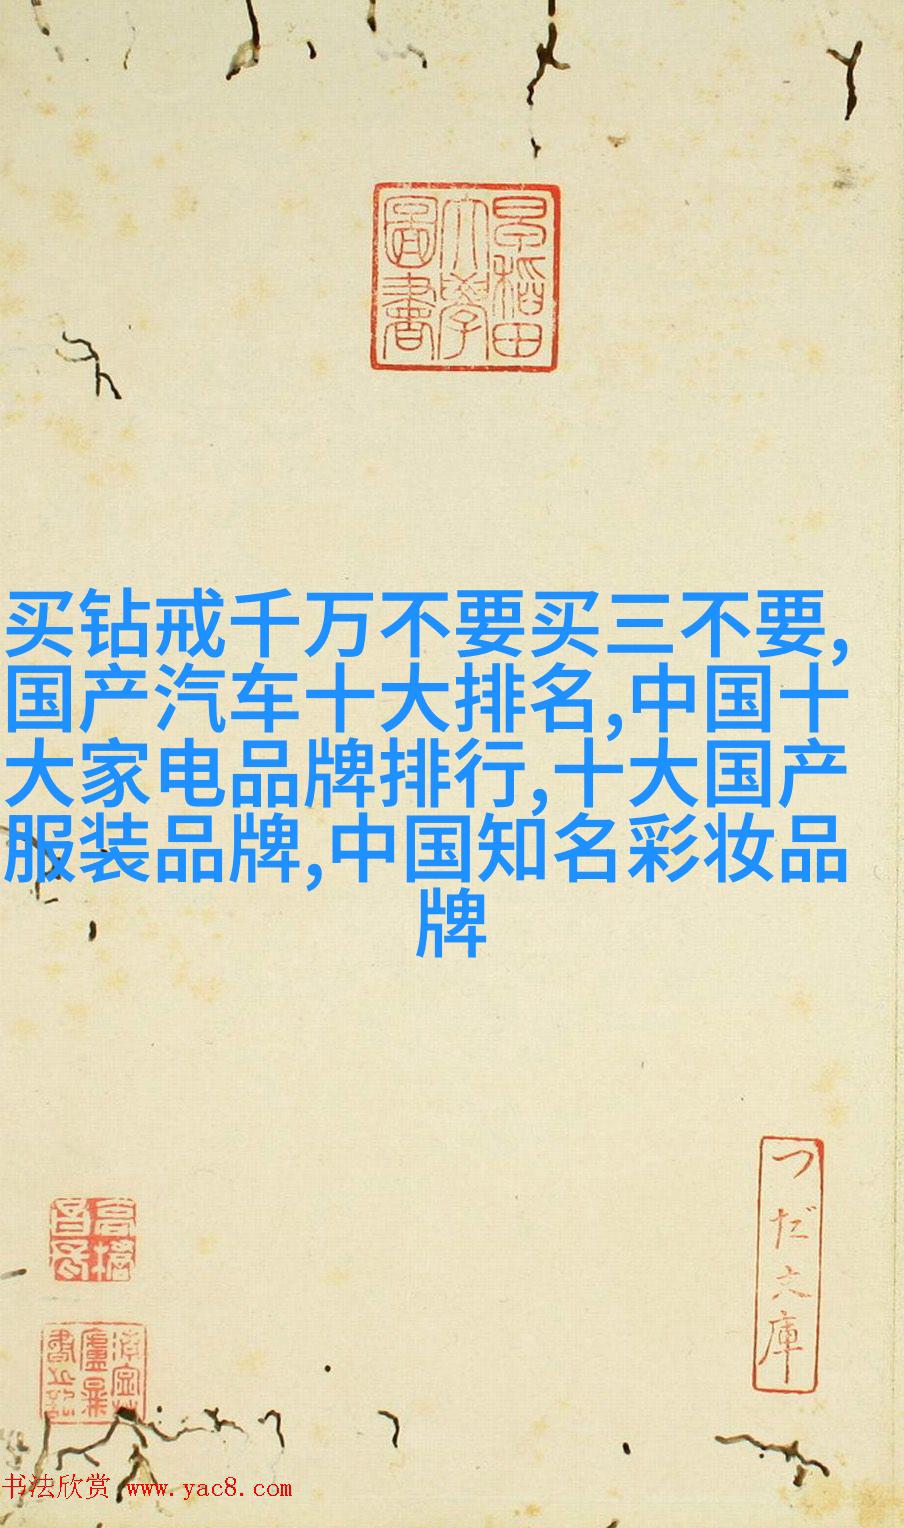 早稲田
大學
圖書
买钻戒千万不要买三不要,
国产汽车十大排名,中国十
大家电品牌排行,十大国产
服装品牌,中国知名彩妆品
牌
つだ文庫
书法欣赏 www.yac8.com